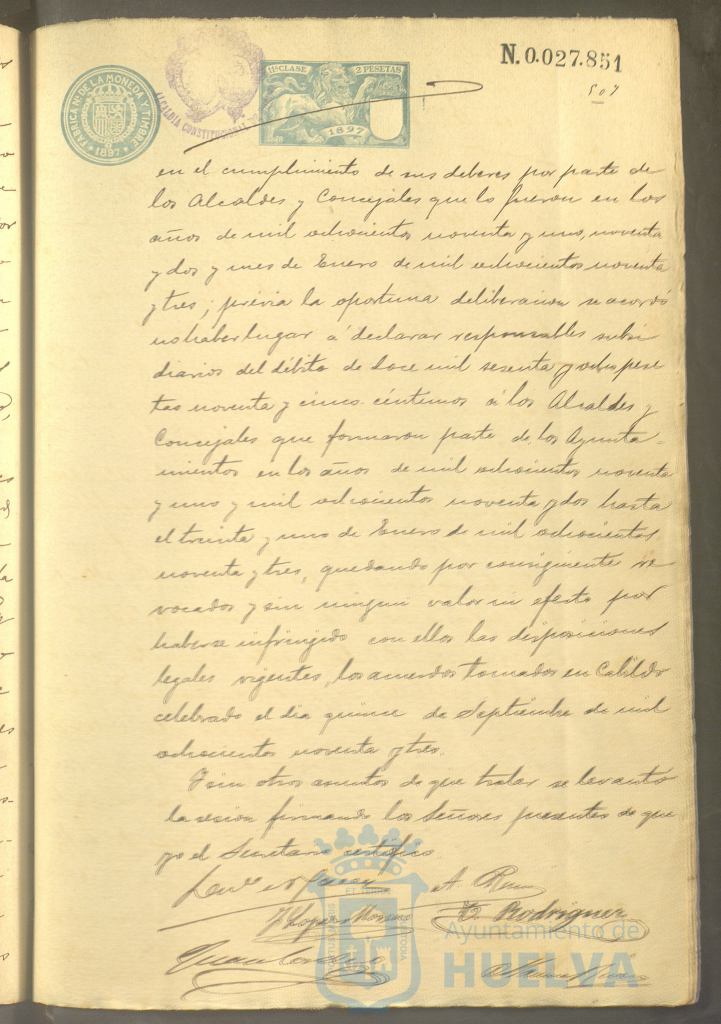 N.0.027.851
507
11ª CLASE 2 PESETAS
1897
FABRICA Nal DE LA MONEDA Y TIMBRE
1897
ALCALDIA CONSTITUCIONAL
en el cumplimiento de sus deberes por parte de
los Alcaldes y Concejales que lo fueron en los
años de mil ochocientos noventa y uno, noventa
y dos y mes de Enero de mil ochocientos noventa
y tres; prévia la oportuna deliberacion se acordó
no haber lugar á declarar responsables subsi
diarios del débito de doce mil sesenta y ocho pese
tas noventa y cinco céntimos á los Alcaldes y
Concejales que formaron parte de los Ayunta-
mientos en los años de mil ochocientos noventa
y uno y mil ochocientos noventa y dos hasta
el treinta y uno de Enero de mil ochocientos
noventa y tres, quedando por consiguiente re
vocados y sin ningun valor ni efecto por
haberse infringido con ellos las disposiciones
legales vigentes, los acuerdos tomados en Cabildo
celebrado el dia quince de Septiembre de mil
ochocientos noventa y tres.
Y sin otros asuntos de que tratar se levantó
la sesion firmando los Señores presentes de que
yo el Secretario certifico.
J. Lopez Moreno
Rodriguez
Ayuntamiento de
HUELVA